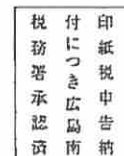 印紙税申告納
付につき広島南
税務署承認済